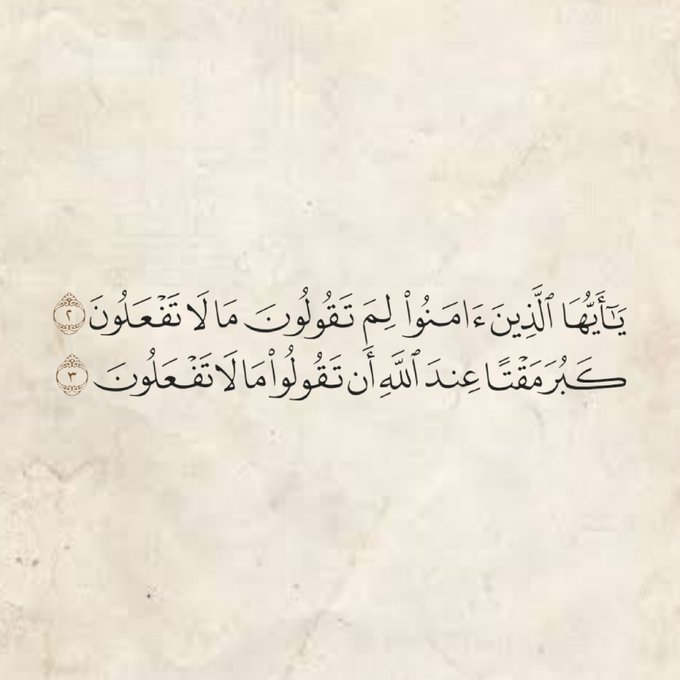 يَـٰٓأَيُّهَا ٱلَّذِينَ ءَامَنُوا۟ لِمَ تَقُولُونَ مَا لَا تَفْعَلُونَ ٢
كَبُرَ مَقْتًا عِندَ ٱللَّهِ أَن تَقُولُوا۟ مَا لَا تَفْعَلُونَ ٣